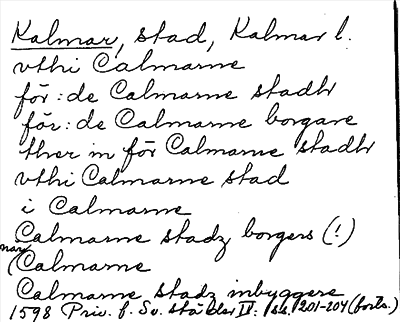 Kalmar, stad, Kalmar l.
vthi Calmarne
för: de Calmarne stadh
för: de Calmarne borgare
ther in för Calmarne stadh
vthi Calmarne stad
i Calmarne
Calmarne stadz borgers (!)
(Calmarne
Calmarne stadz inbyggere
1598 Priv. f. Sv. städer II: ss. 201-204 (forts.)